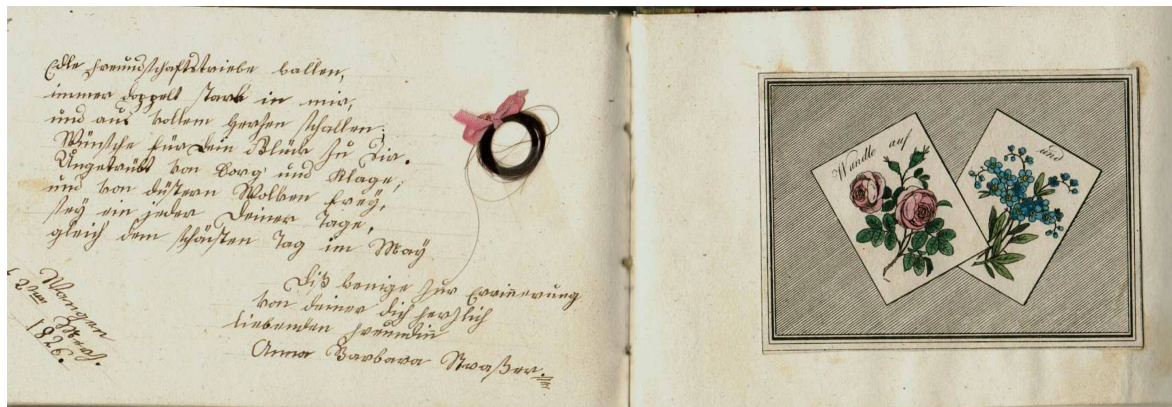 Edle Freundschaftstriebe wallen,
immer doppelt stark in mir,
und aus vollem Herzen schallen;
Wünsche für dein Glück zu dir.
Ungetrübt von Sorg' und Klage;
und von düstern Wolken frey,
sey ein jeder Deiner Tage,
gleich dem schönsten Tag im May
Diß wenige zur Erinerung
von deiner dich herzlich
liebenden Freundin
Anna Barbara Straßer.
Wangen
Merz.
1826.
Wandle auf
und